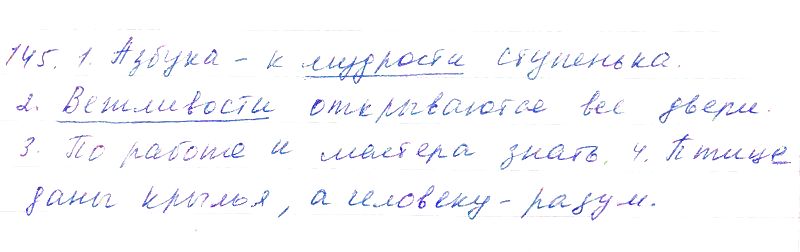 145. 1. Азбука – к мудрости ступенька.
2. Вежливости открываются все двери.
3. По работе и мастера знать. 4. Птице
даны крылья, а человеку – разум.